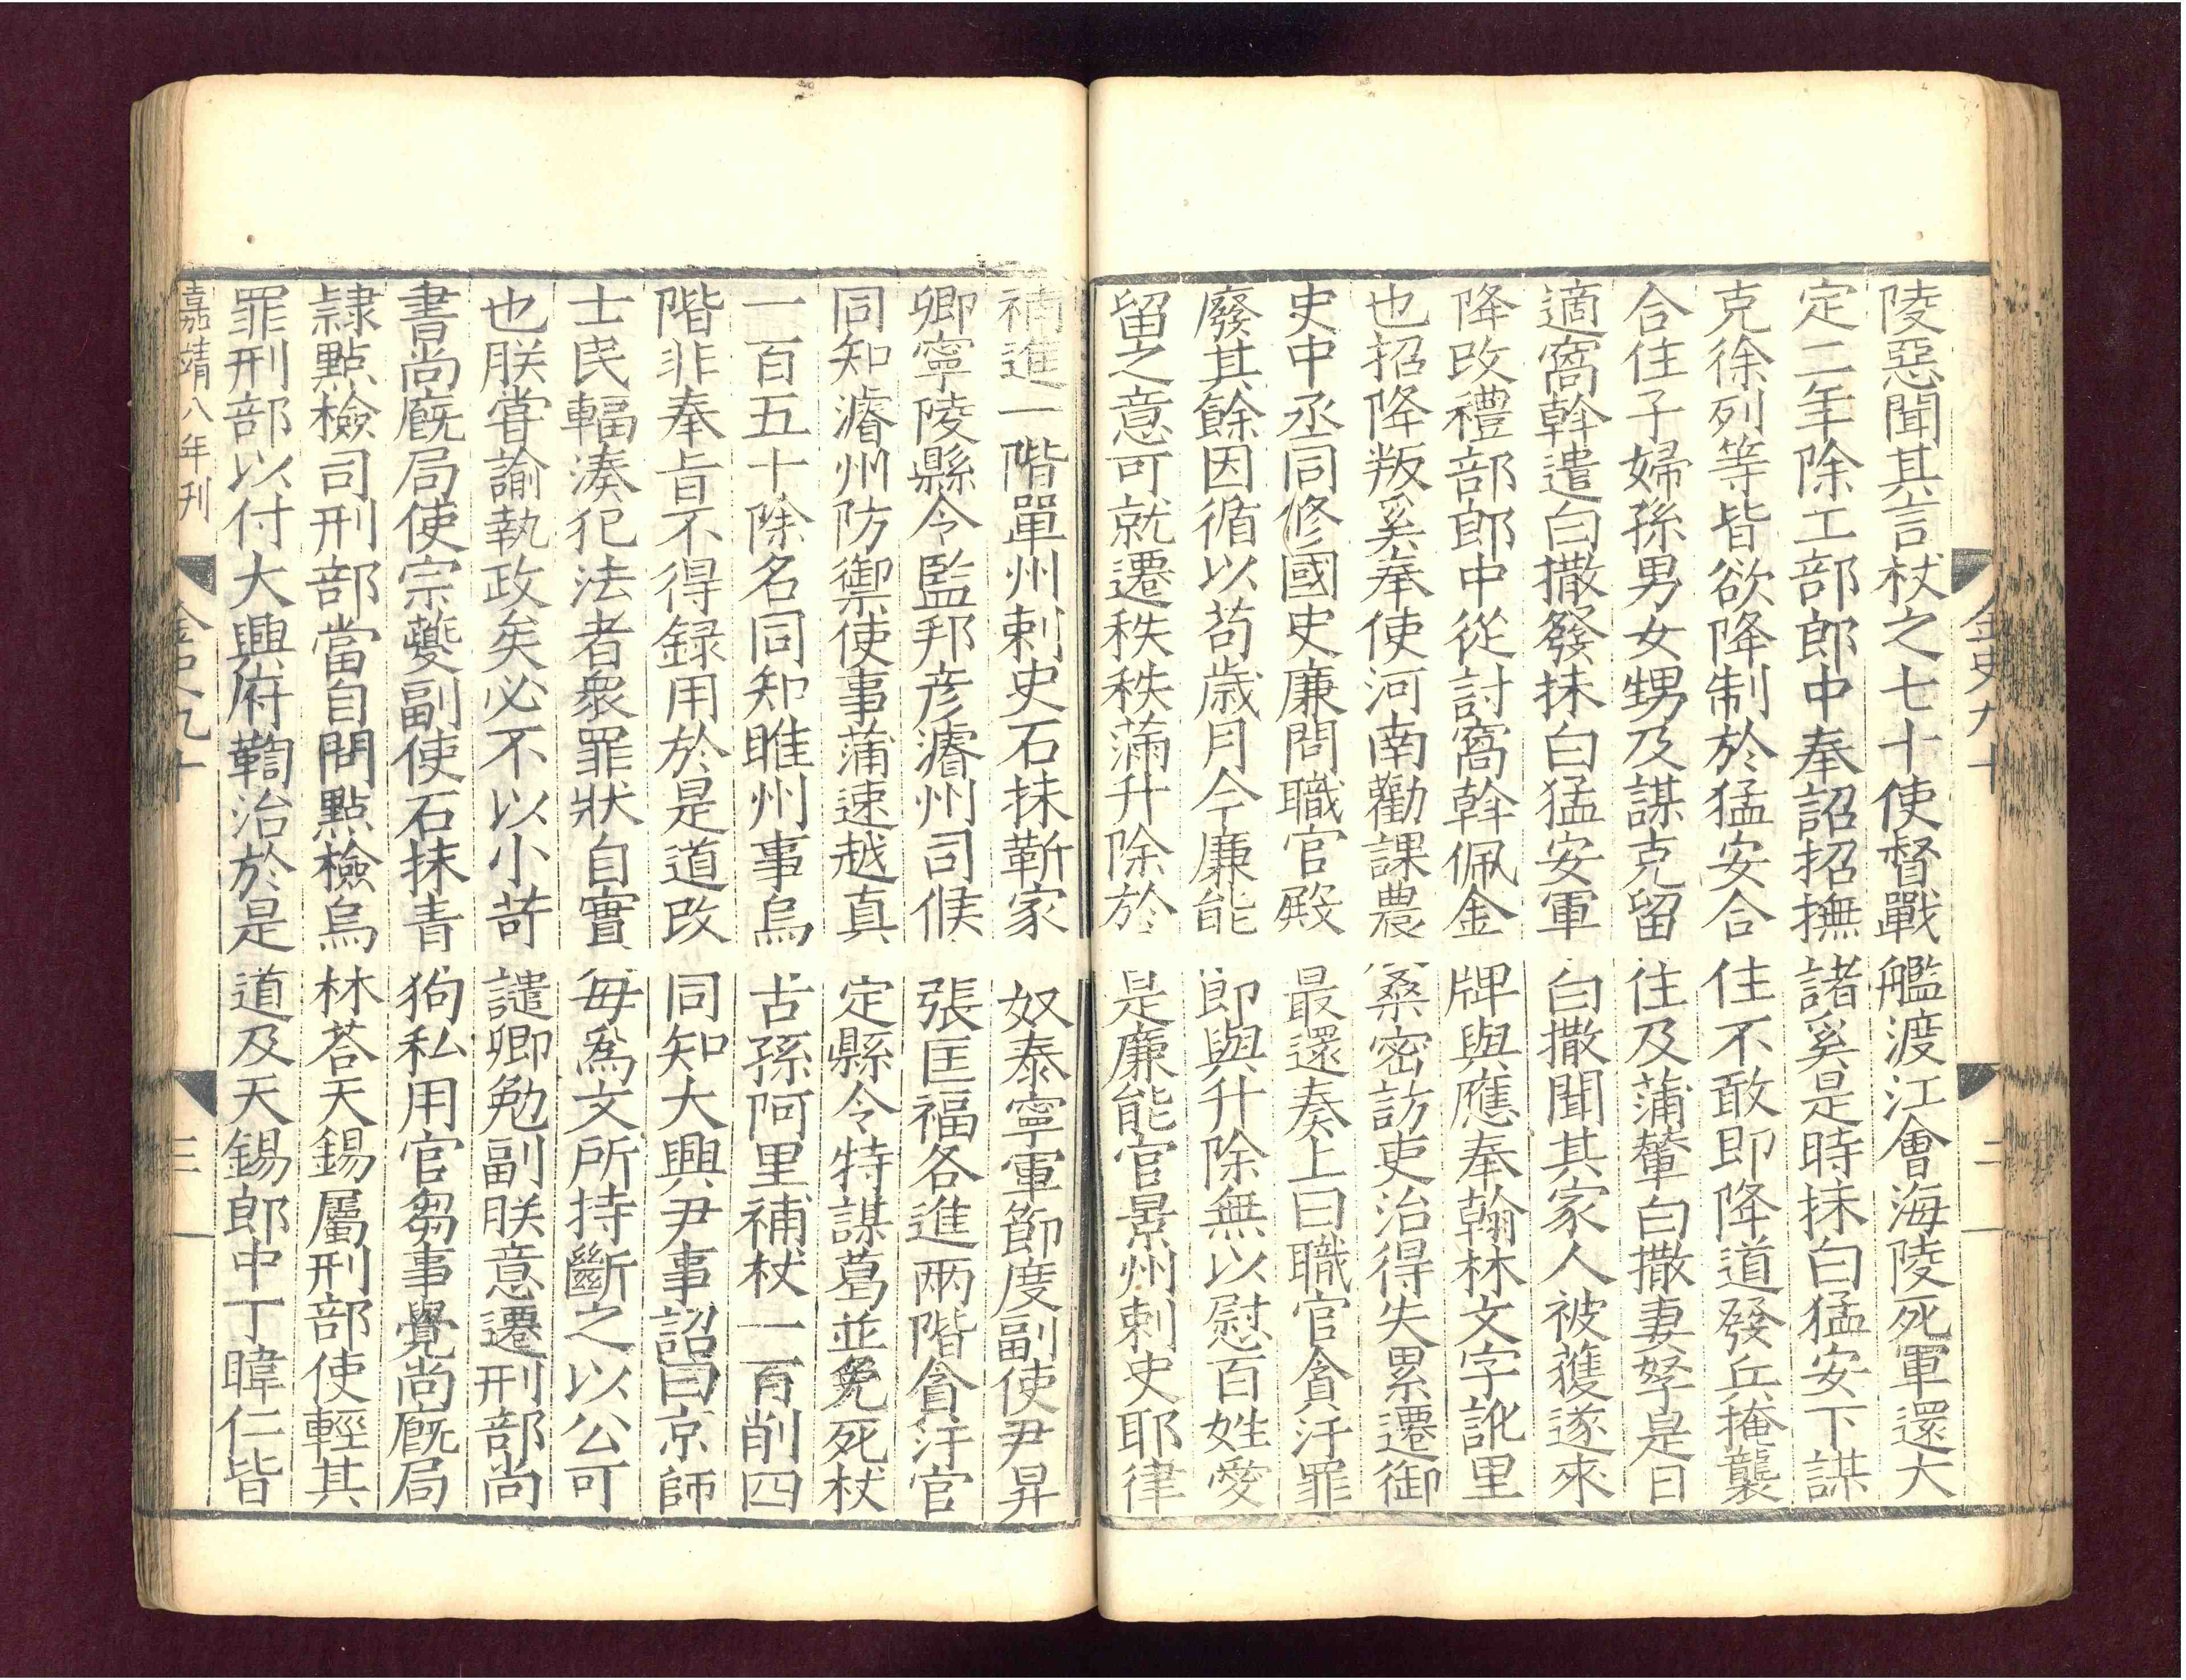 金史九十
二
陵惡聞其言杖之七十使督戰艦渡江會海陵死軍還大
定二年除工部郎中奉詔招撫諸奚是時抹白猛安下謀
克徐列等皆欲降制於猛安合住不敢即降道發兵掩襲
合住子婦孫男女甥及謀克留住及蒲輦白撒妻孥是日
適窩斡遣白撒發抹白猛安軍白撒聞其家人被獲遂來
降改禮部郎中從討窩斡佩金牌與應奉翰林文字訛里
也招降叛奚奉使河南勸課農桑密訪吏治得失累遷御
史中丞同修國史廉問職官殿最還奏上曰職官貪汙罪
廢其餘因循以苟歲月今廉能即與升除無以慰百姓愛
留之意可就遷秩秩滿升除於是廉能官景州刺史耶律
補進一階單州刺史石抹靳家奴泰寧軍節度副使尹昇
卿寧陵縣令監邦彥濬州司候張匡福各進兩階貪汙官
同知濬州防禦使事蒲速越真定縣令特謀葛並免死杖
一百五十除名同知睢州事烏古孫阿里補杖一百削四
階非奉旨不得録用於是道改同知大興尹事詔曰京師
士民輻湊犯法者衆罪狀自實毎爲文所持斷之以公可
也朕甞諭執政矣必不以小苛譴卿勉副朕意遷刑部尚
書尚廐局使宗夔副使石抹青狗私用官芻事覺尚廐局
隷點檢司刑部當自問點檢烏林荅天錫屬刑部使輕其
罪刑部以付大興府鞫治於是道及天錫郎中丁暐仁皆
嘉靖八年刊
金史九十
三